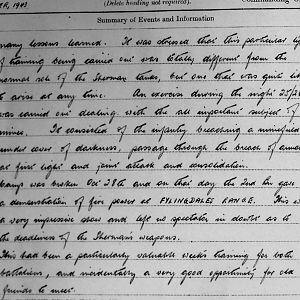 ER, 1943
(Delete heading not required).
Commanding
Summary of Events and Information
many lessons learned. It was stressed that this particular ty
of training being carried out was totally different from the
normal role of the Sherman tanks, but one that was quite lik
to arise at any time. An exercise during the night 25/26
was carried out dealing with the all important subject of
mines. It consisted of the infantry breaching a minefield
under cover of darkness, passage through the breach of armou
at first light and joint attack and consolidation.
Camp was broken Oct 28th and on that day the 2nd Bn gave
a demonstration of fire power at FYLINGDALES RANGE. This w
a very impressive show and left no spectator in doubt as to
the deadliness of the Sherman's weapons.
This had been a particularly valuable weeks training for both
battalions, and incidentally a very good opportunity for old
friends to meet.